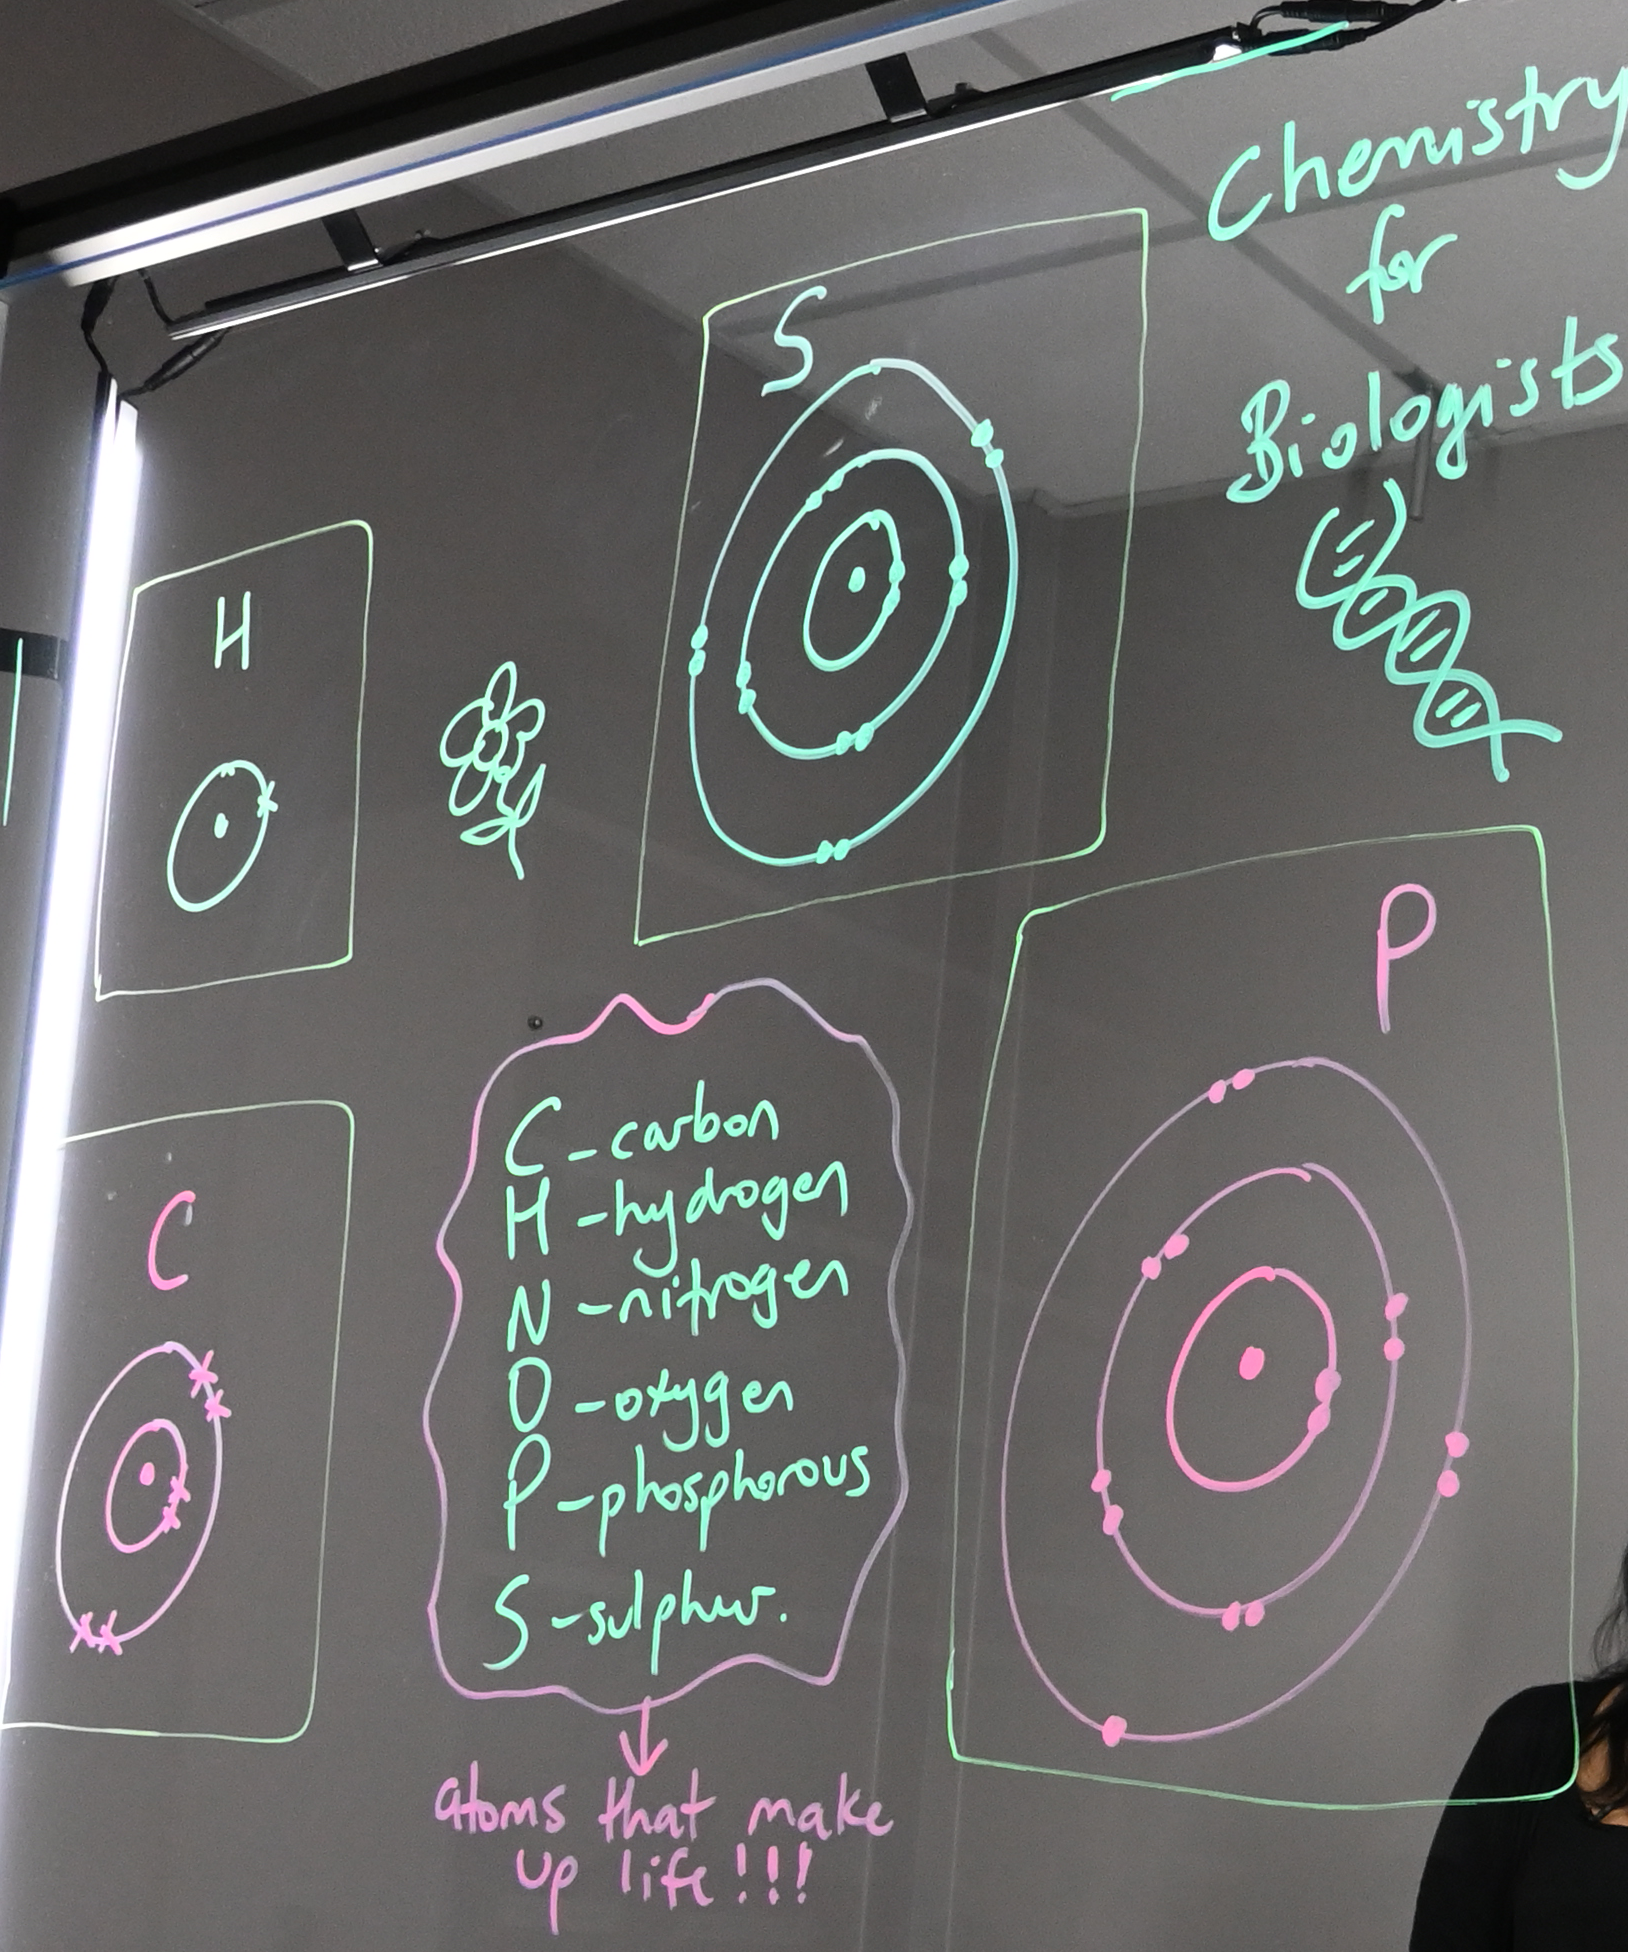 Chemistry
for
Biologists
S
H
P
C
C - carbon
H - hydrogen
N - nitrogen
O - oxygen
P - phosphorous
S - sulphur.
atoms that make
up life!!!